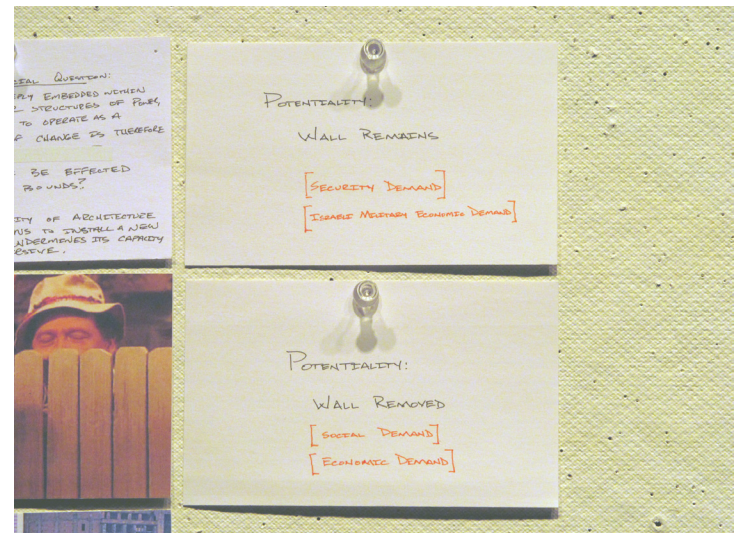 QUESTION:
EMBEDDED WITHIN
STRUCTURES OF POWER,
TO OPERATE AS A
CHANGE IS THEREFORE
BE EFFECTED
BOUNDS?
OF ARCHITECTURE
TO INSTALL A NEW
UNDERMINES ITS CAPACITY
POTENTIALITY:
WALL REMAINS
[SECURITY DEMAND]
[ISRAELI MILITARY ECONOMIC DEMAND]
POTENTIALITY:
WALL REMOVED
[SOCIAL DEMAND]
[ECONOMIC DEMAND]